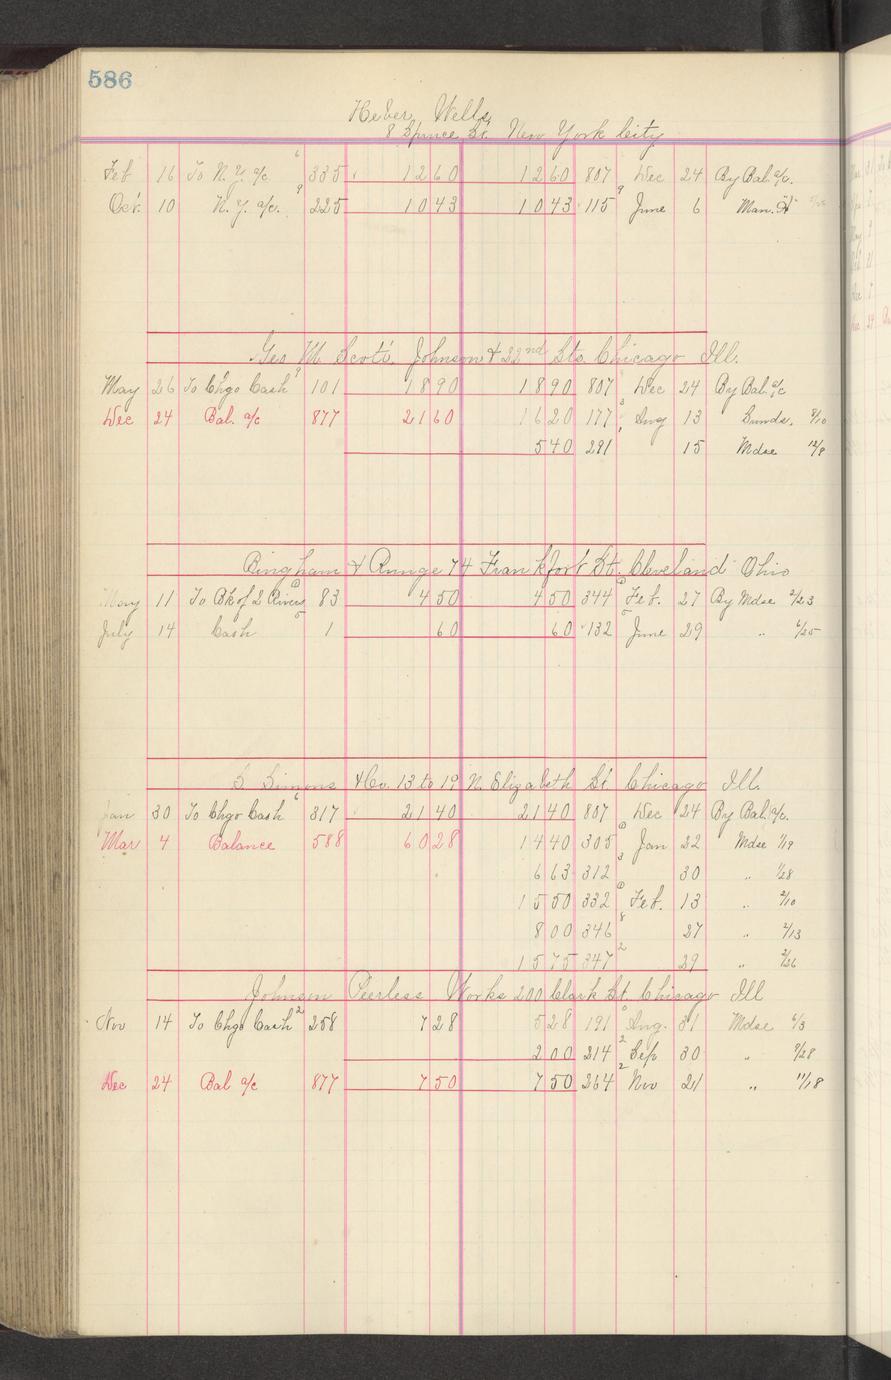 586
Heber Wells,
8 Spruce St. New York City
Feb 16 To N.Y. a/c. 6 335 1260 1260 807 Dec 24 By Bal. a/c.
Oct. 10 N.Y. a/c. 9 225 1043 1043 115 9 June 6 Man.
Geo M. Scott. Johnson & 22nd Sts. Chicago Ill.
May 26 To Chgo Cash 9 101 1890 1890 807 Dec 24 By Bal a/c
Dec 24 Bal. a/c 877 2160 1620 177 3 Aug 13 Sunds. 8/10
540 291 1 15 Mdse 12/8
Bingham & Runge 74 Frankfort St. Cleveland Ohio
May 11 To Bk of 2 Rivers 83 450 450 344 Feb. 27 By Mdse 2/23
July 14 Cash 5 1 60 60 132 5 June 29 " 6/25
S Simons & Co. 13 to 19 N. Elizabeth St. Chicago Ill.
Jan 30 To Chgo Cash 6 317 2140 2140 807 Dec 24 By Bal. a/c.
Mar 4 Balance 588 6028 1440 305 Jan 22 Mdse 1/19
663 312 3 30 " 1/28
1550 332 Feb. 13 " 2/10
800 346 8 27 " 2/13
1575 347 2 29 " 2/26
Johnson Peerless Works 200 Clark St. Chicago Ill
Nov 14 To Chgo Cash 2 258 728 528 191 Aug. 31 Mdse 6/3
200 214 2 Sep 30 " 9/28
Dec 24 Bal a/c 877 750 750 264 2 Nov 21 " 11/18